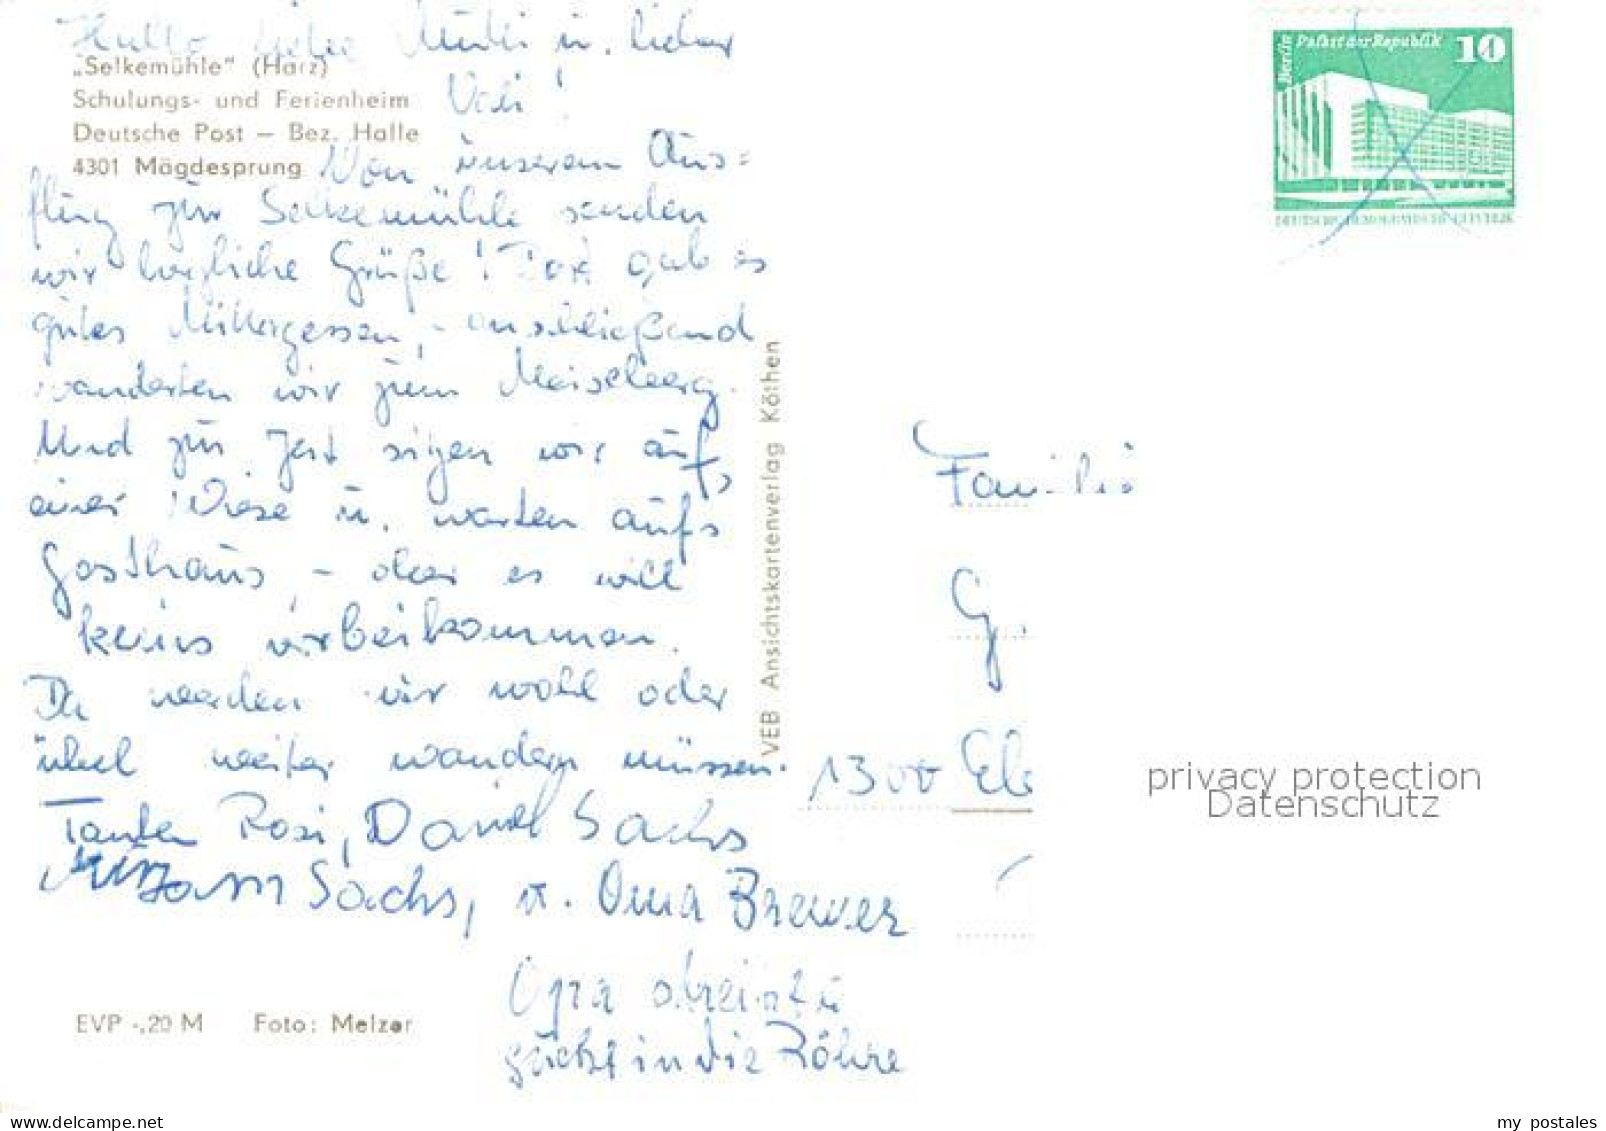 Hallo liebe Mutti u. lieber
Vati!
„Selkemühle" (Harz)
Schulungs- und Ferienheim
Deutsche Post – Bez. Halle
4301 Mägdesprung
Von unserem Aus-
flug zur Selkemühle senden
wir herzliche Grüße! Dort gab es
gutes Mittagessen, anschließend
wanderten wir zum Meiseberg.
Und zur Zeit sitzen wir auf
einer Wiese u. warten aufs
Gasthaus, – aber es will
keins vorbeikommen.
Da werden wir wohl oder
übel weiter wandern müssen.
Tanten Rosi, Daniel Sachs
Sachs, u. Oma Brewer
Opa
guckt in die Röhre
EVP -,20 M Foto: Melzer
VEB Ansichtskartenverlag Köthen
Berlin Palast der Republik 10
DEUTSCHE DEMOKRATISCHE REPUBLIK
Familie
G.
1300 Eb
privacy protection
Datenschutz
my postales